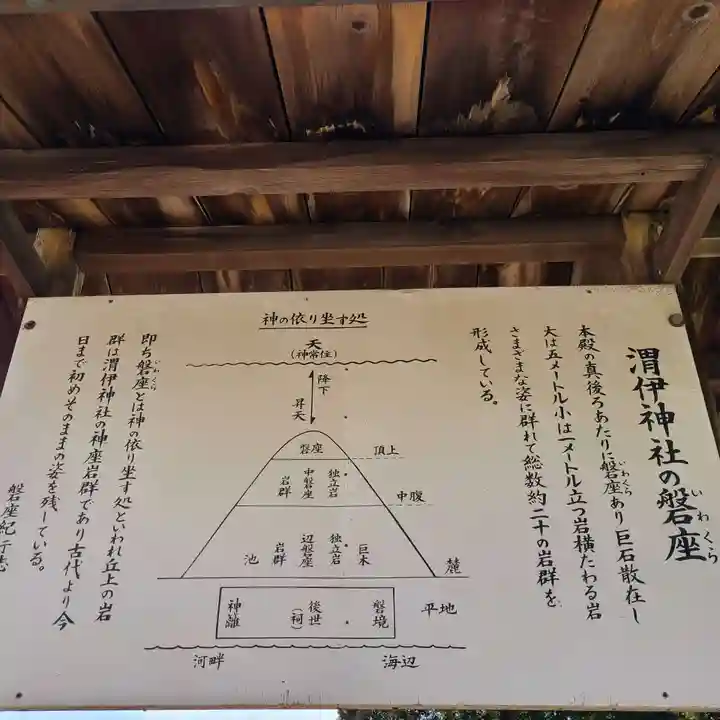 渭伊神社の磐座
いわくら
本殿の真後ろあたりに磐座あり巨石散在し
いわくら
大は五メートル小は一メートル立つ岩横たわる岩
さまざまな姿に群れて総数約二十の岩群を
形成している。
神の依り坐す処
天
(神常住)
降下
昇天
磐座
頂上
岩群
中磐座
独立岩
中腹
池
岩群
辺磐座
独立岩
巨木
麓
神離
後世(祠)
磐境
平地
河畔
海辺
即ち磐座とは神の依り坐す処といわれ丘上の岩
いわくら
群は渭伊神社の神座岩群であり古代より今
日まで初めそのままの姿を残している。
磐座紀行志